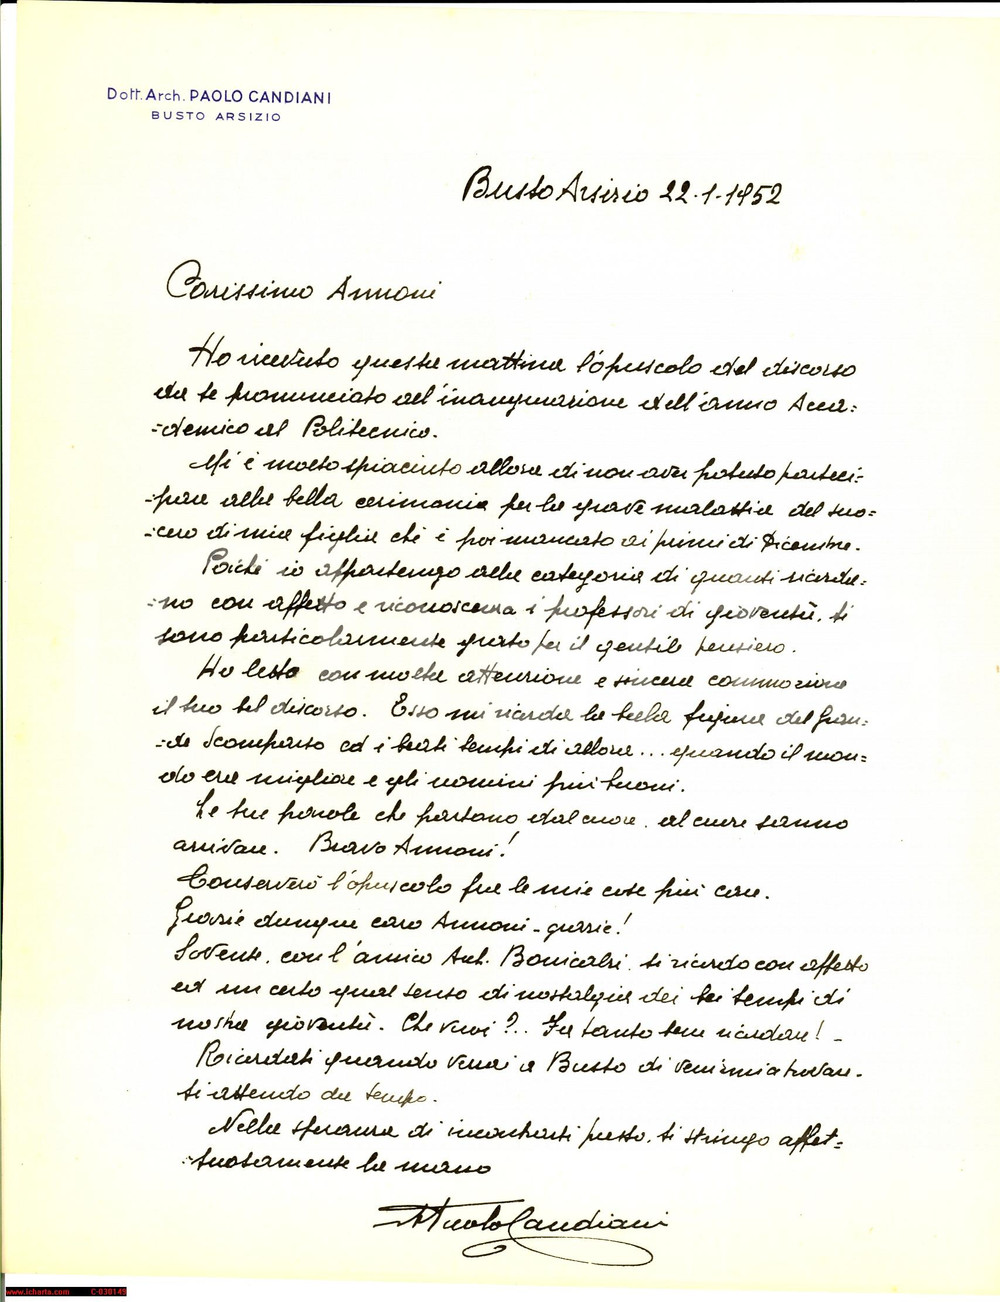 Dott. Arch. PAOLO CANDIANI
BUSTO ARSIZIO
Busto Arsizio 22.1.1952
Carissimo Annoni
Ho ricevuto questa mattina l'opuscolo del discorso
da te pronunciato all'inaugurazione dell'anno Acca=
=demico al Politecnico.
Mi è molto spiaciuto allora di non aver potuto parteci=
=pare alla bella cerimonia per la grave malattia del suo=
=cero di mia figlia che è poi mancato ai primi di Dicembre.
Poiché io appartengo alla categoria di quanti ricorda=
=no con affetto e riconoscenza i professori di gioventù, ti
sono particolarmente grato per il gentile pensiero.
Ho letto con molta attenzione e sincera commozione
il tuo bel discorso. Esso mi ricorda la bella figura del Gran=
=de Scomparso ed i beati tempi di allora... quando il mon=
do era migliore e gli uomini più buoni.
Le tue parole che partono dal cuore, al cuore sanno
arrivare. Bravo Annoni!
Conserverò l'opuscolo fra le mie cose più care.
Grazie dunque caro Annoni - grazie!
Sovente, con l'amico Arch. Bonicalzi, ti ricordo con affetto
ed un certo qual senso di nostalgia dei bei tempi di
nostra gioventù. Che vuoi?.. Fa tanto bene ricordare! -
Ricordati quando verrai a Busto di venirmi a trovare.
ti attendo da tempo.
Nella speranza di incontrarti presto, ti stringo affet=
=tuosamente la mano
Paolo Candiani
www.icharta.com C-030149